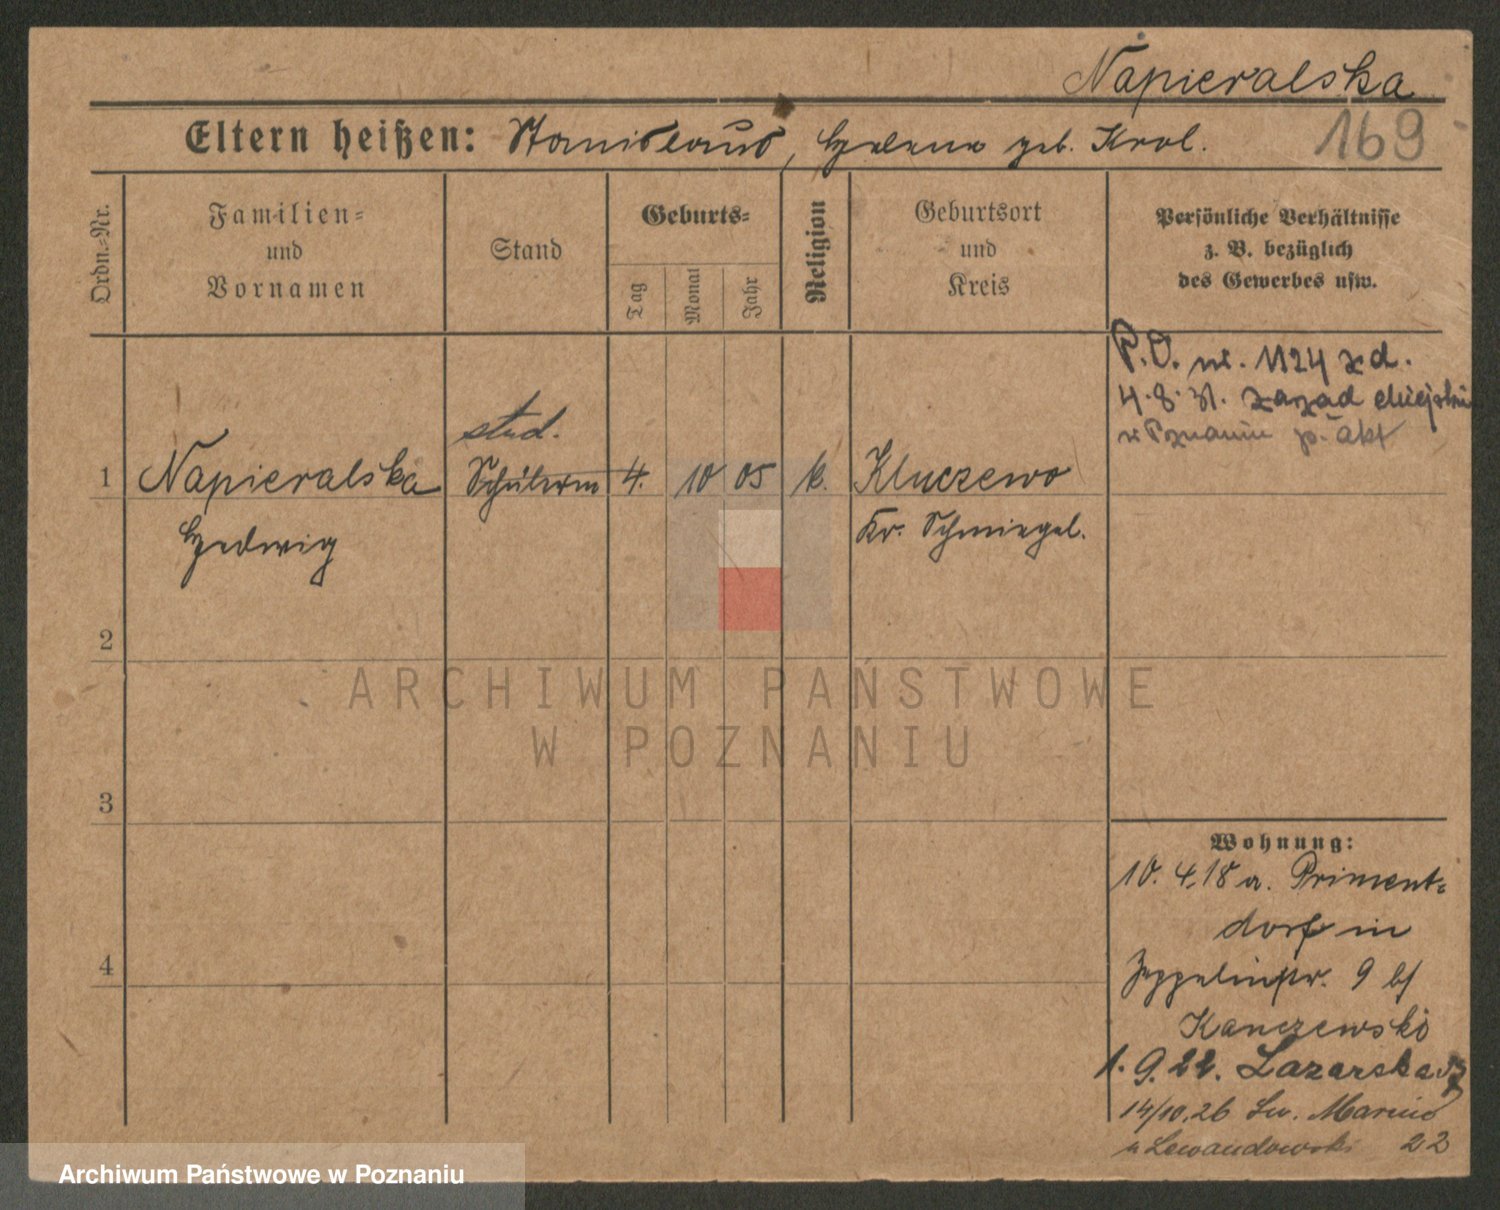 Napieralska
Eltern heißen: Stanislaus, Helena geb. Krol.
169
Ordn.-Nr.
Familien-
und
Vornamen
Stand
Geburts-
Tag
Monat
Jahr
Religion
Geburtsort
und
Kreis
Persönliche Verhältnisse
z. B. bezüglich
des Gewerbes usw.
P.O. nr. 1124 z d.
4.8.31. zarząd Miejski
w Poznaniu p. akt
stud.
1 Napieralska Schülerin 4. 10 05 k. Kluczewo
Hedwig Kr. Schmiegel.
2
3
4
Wohnung:
10.4.18 a. Priment-
dorf in
Zeppelinstr. 9 b/
Kanczewski
1.9.22. Lazarska
14/10.26 Św. Marcin
u Lewandowski 22
ARCHIWUM PAŃSTWOWE
W POZNANIU
Archiwum Państwowe w Poznaniu